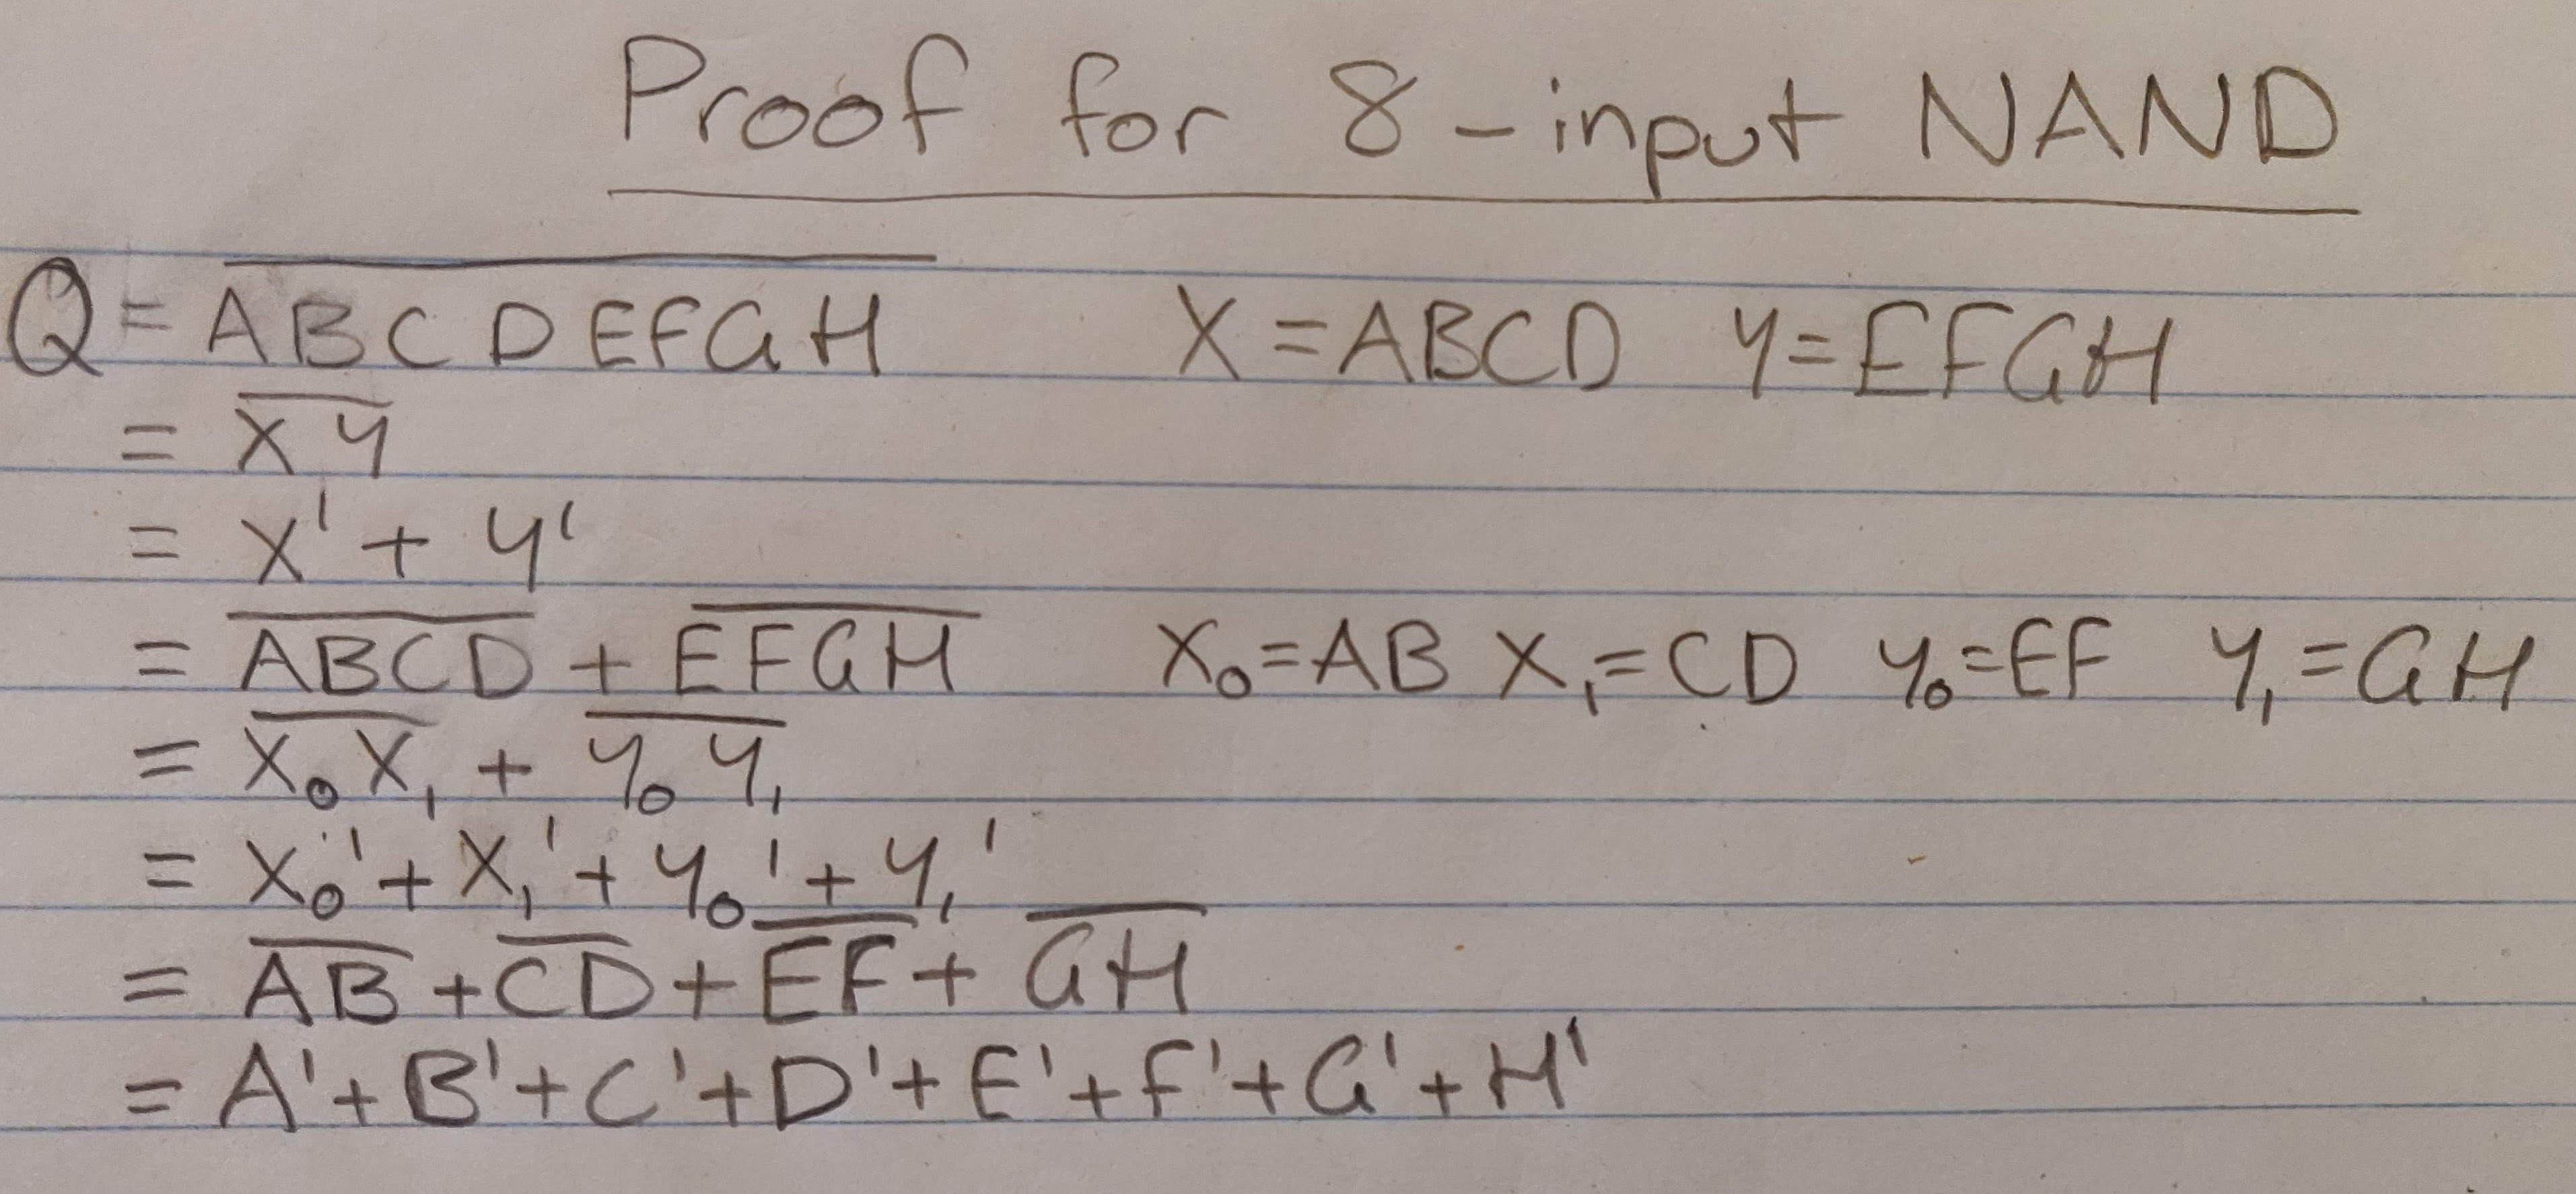 Proof for 8-input NAND
Q = \overline{ABCDEFGH} X = ABCD Y = EFGH
= \overline{XY}
= X' + Y'
= \overline{ABCD} + \overline{EFGH} X₀ = AB X₁ = CD Y₀ = EF Y₁ = GH
= \overline{X₀X₁} + \overline{Y₀Y₁}
= X₀' + X₁' + Y₀' + Y₁'
= \overline{AB} + \overline{CD} + \overline{EF} + \overline{GH}
= A' + B' + C' + D' + E' + F' + G' + H'